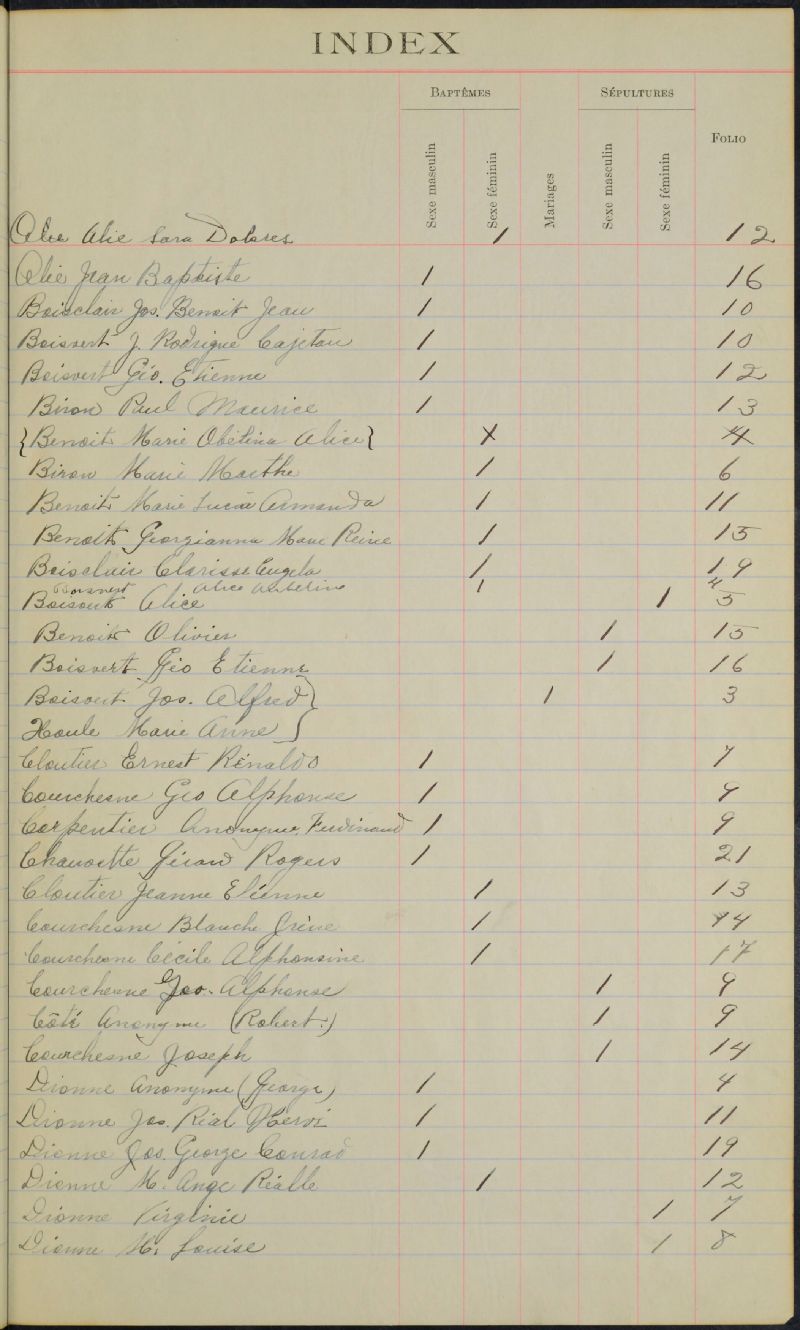 INDEX
Baptêmes Sépultures
Folio
Sexe masculin Sexe féminin Mariages Sexe masculin Sexe féminin
Alie Sara Dolores 1 12
Alie Jean Baptiste 1 16
Boisclair Jos. Benoit Jean 1 10
Boisvert J. Rodrigue Cajetan 1 10
Boisvert Géo. Etienne 1 12
Biron Paul Maurice 1 13
{Benoit Marie Alice} 4
Biron Marie Marthe 1 6
Benoit Marie Lucia Armanda 1 11
Benoit Georgianna Marie Reine 1 15
Boisclair Clarisse Angela 1 19
Boisvert Alice 1 4
Alice 1 5
Benoit Olivier 1 15
Boisvert Géo Etienne 1 16
Boisvert Jos. Alfred} 1 3
Houle Marie Anne}
Cloutier Ernest Rénaldo 1 7
Courchesne Geo Alphonse 1 9
Carpentier Anonyme, Ferdinand 1 9
Chaurette Gérard Rogers 1 21
Cloutier Jeanne 1 13
Courchesne Blanche Irène 1 14
Courchesne Cécile Alphonsine 1 17
Courchesne Geo. Alphonse 1 9
Côté Anonyme (Robert.) 1 9
Courchesne Joseph 1 14
Dionne Anonyme (George) 1 4
Dionne Jos. Réal Hervé 1 11
Dionne Jos. George Conrad 1 19
Dionne M. Ange Réalle 1 12
Dionne Virginie 1 7
Dionne M. Louise 1 8